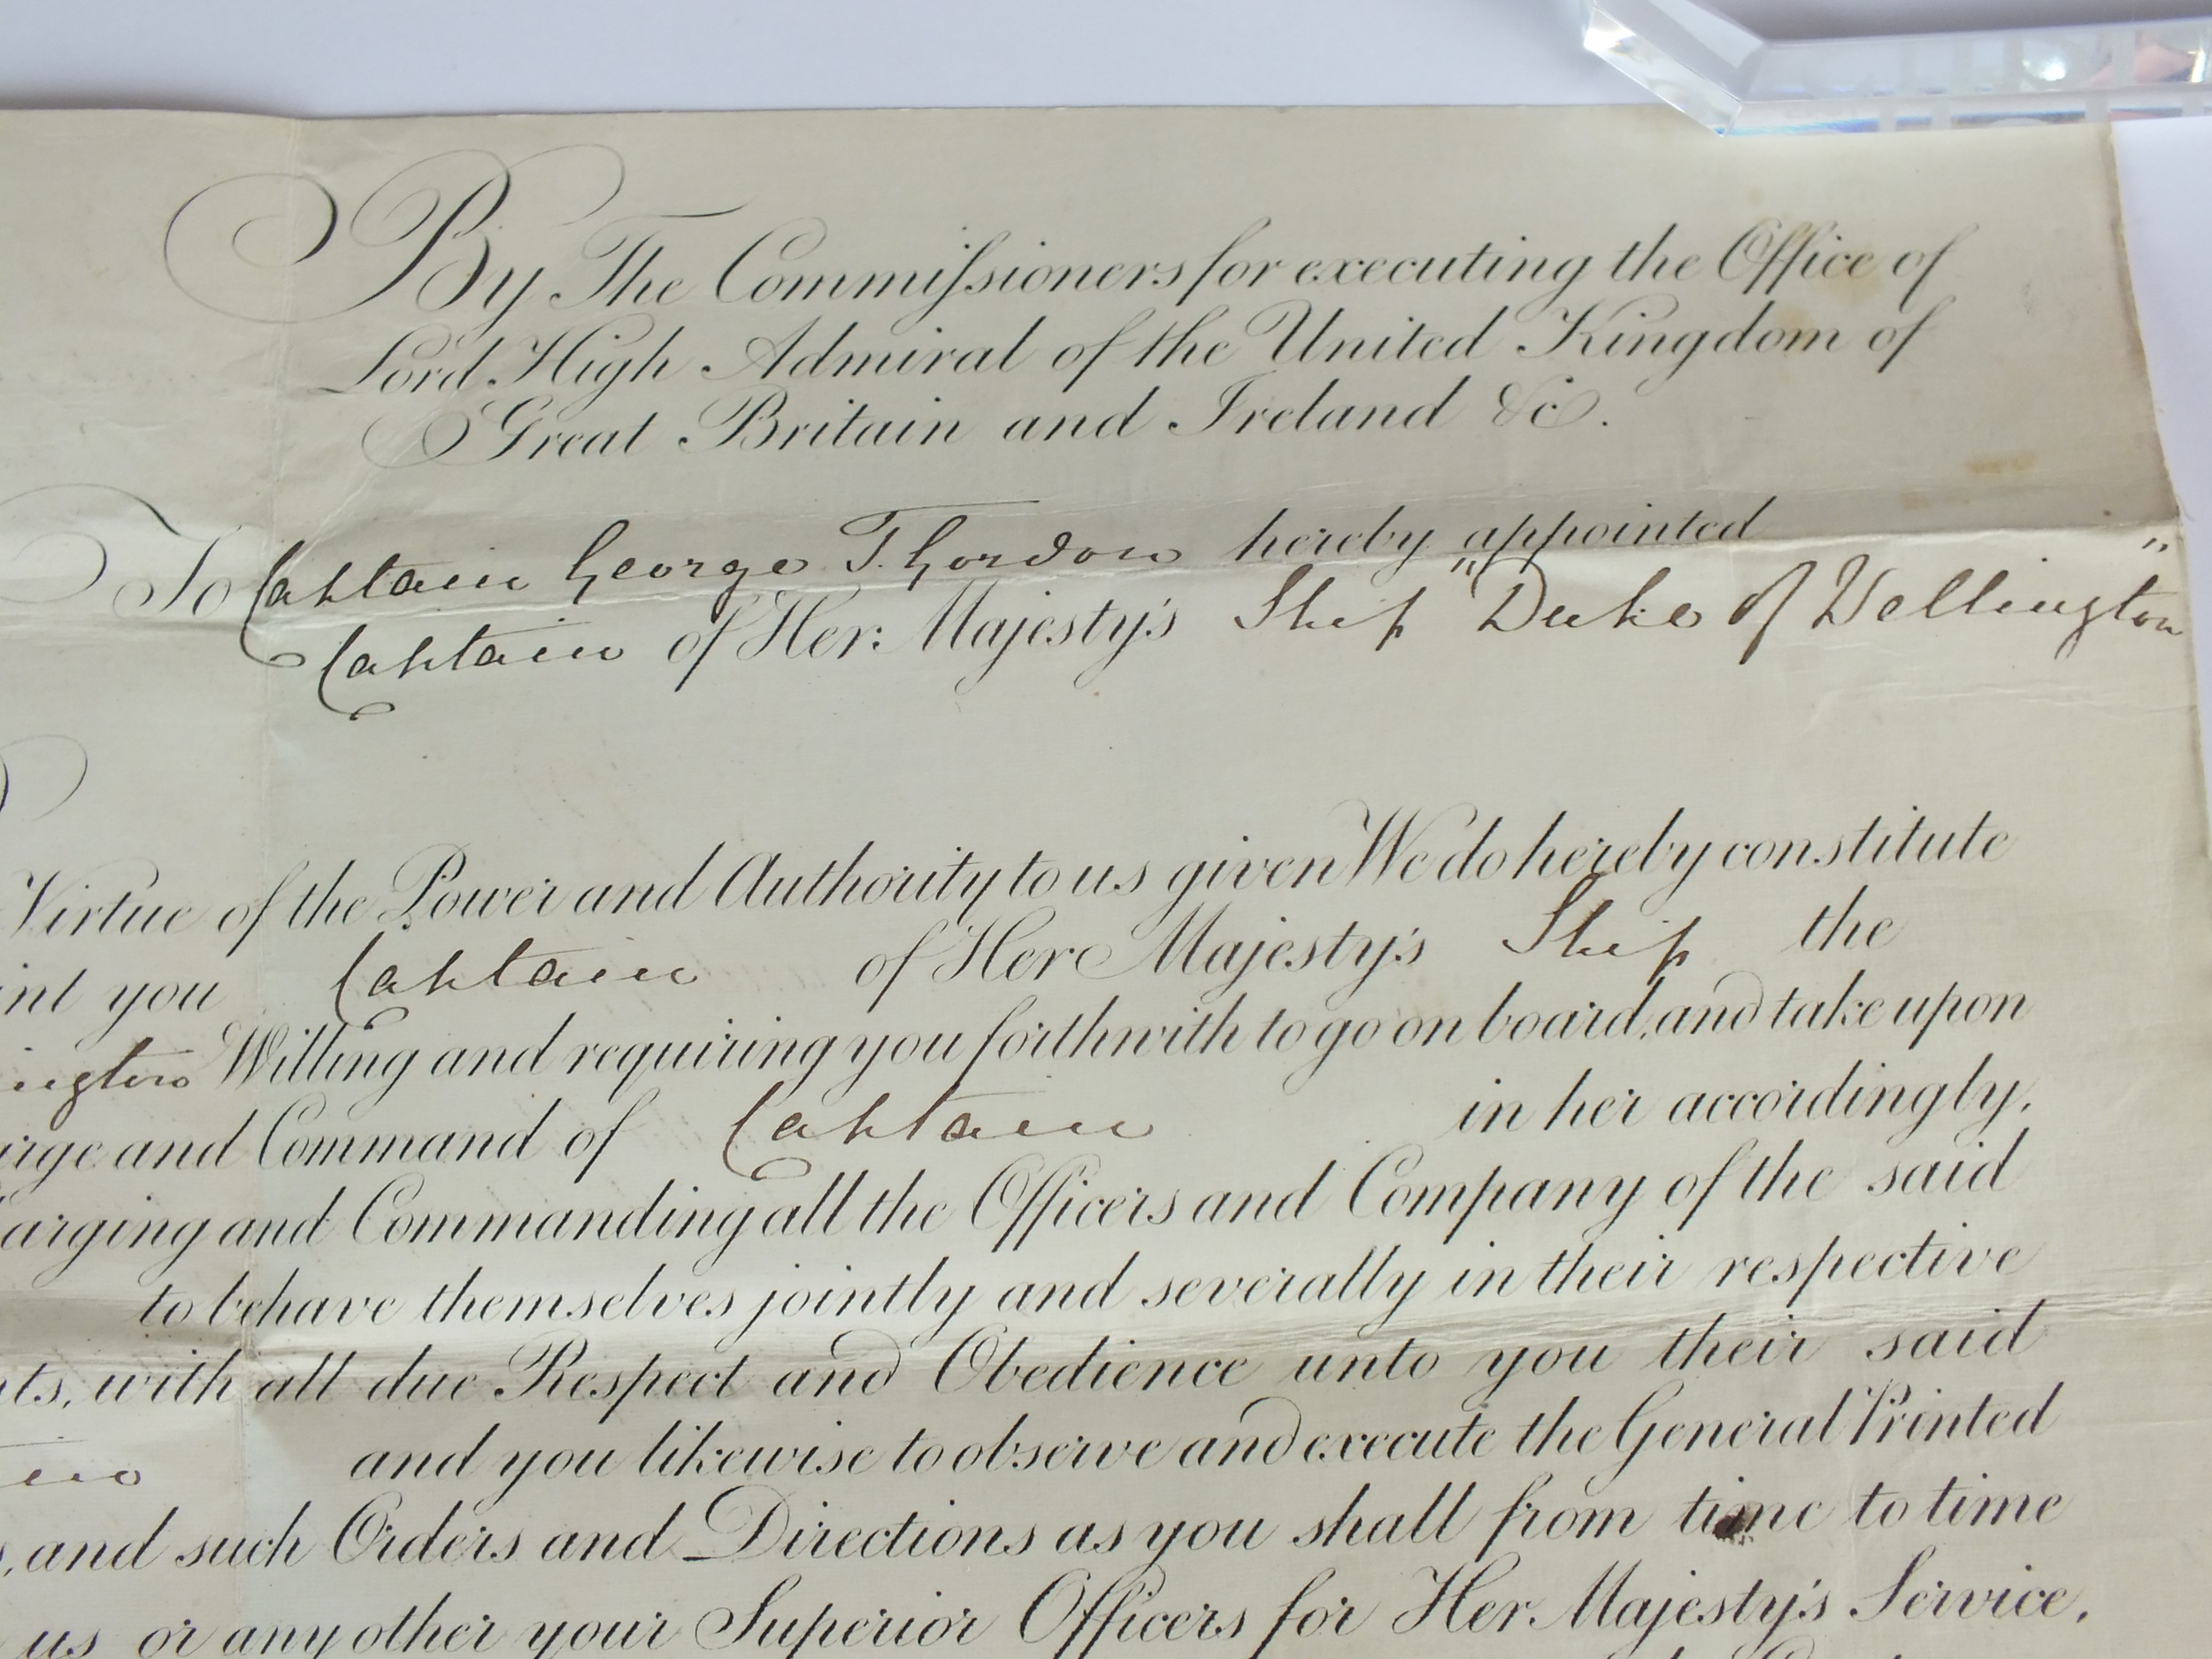 By The Commissioners for executing the Office of
Lord High Admiral of the United Kingdom of
Great Britain and Ireland &c.
To Captain George T. Gordon hereby appointed
Captain of Her Majesty's Ship "Duke of Wellington"
Virtue of the Power and Authority to us given We do hereby constitute
int you Captain of Her Majesty's Ship the
ington Willing and requiring you forthwith to go on board and take upon
arge and Command of Captain in her accordingly.
arging and Commanding all the Officers and Company of the said
to behave themselves jointly and severally in their respective
ts, with all due Respect and Obedience unto you their said
and you likewise to observe and execute the General Printed
, and such Orders and Directions as you shall from time to time
us or any other your Superior Officers for Her Majesty's Service.